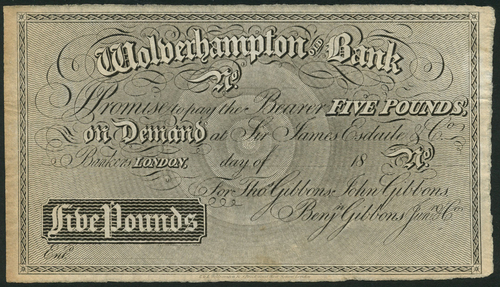 Wolverhampton Bank
No.
I Promise to pay the Bearer FIVE POUNDS,
on Demand at Sir James Esdaile & Co.
Bankers LONDON, day of 18 No.
For Thos. Gibbons, John Gibbons
Five Pounds Benjn. Gibbons Junr. & Co.
Entd.